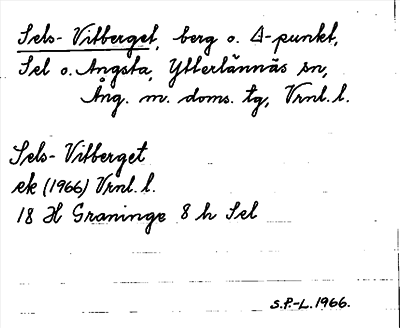 Sels-Vitberget, berg o. Δ-punkt,
Sel o. Angsta, Ytterlännäs sn,
Ång. m. doms. tg, Vrnl. l.
Sels-Vitberget
ek (1966) Vrnl. l.
18 H Graninge 8 h Sel
S.P.-L. 1966.